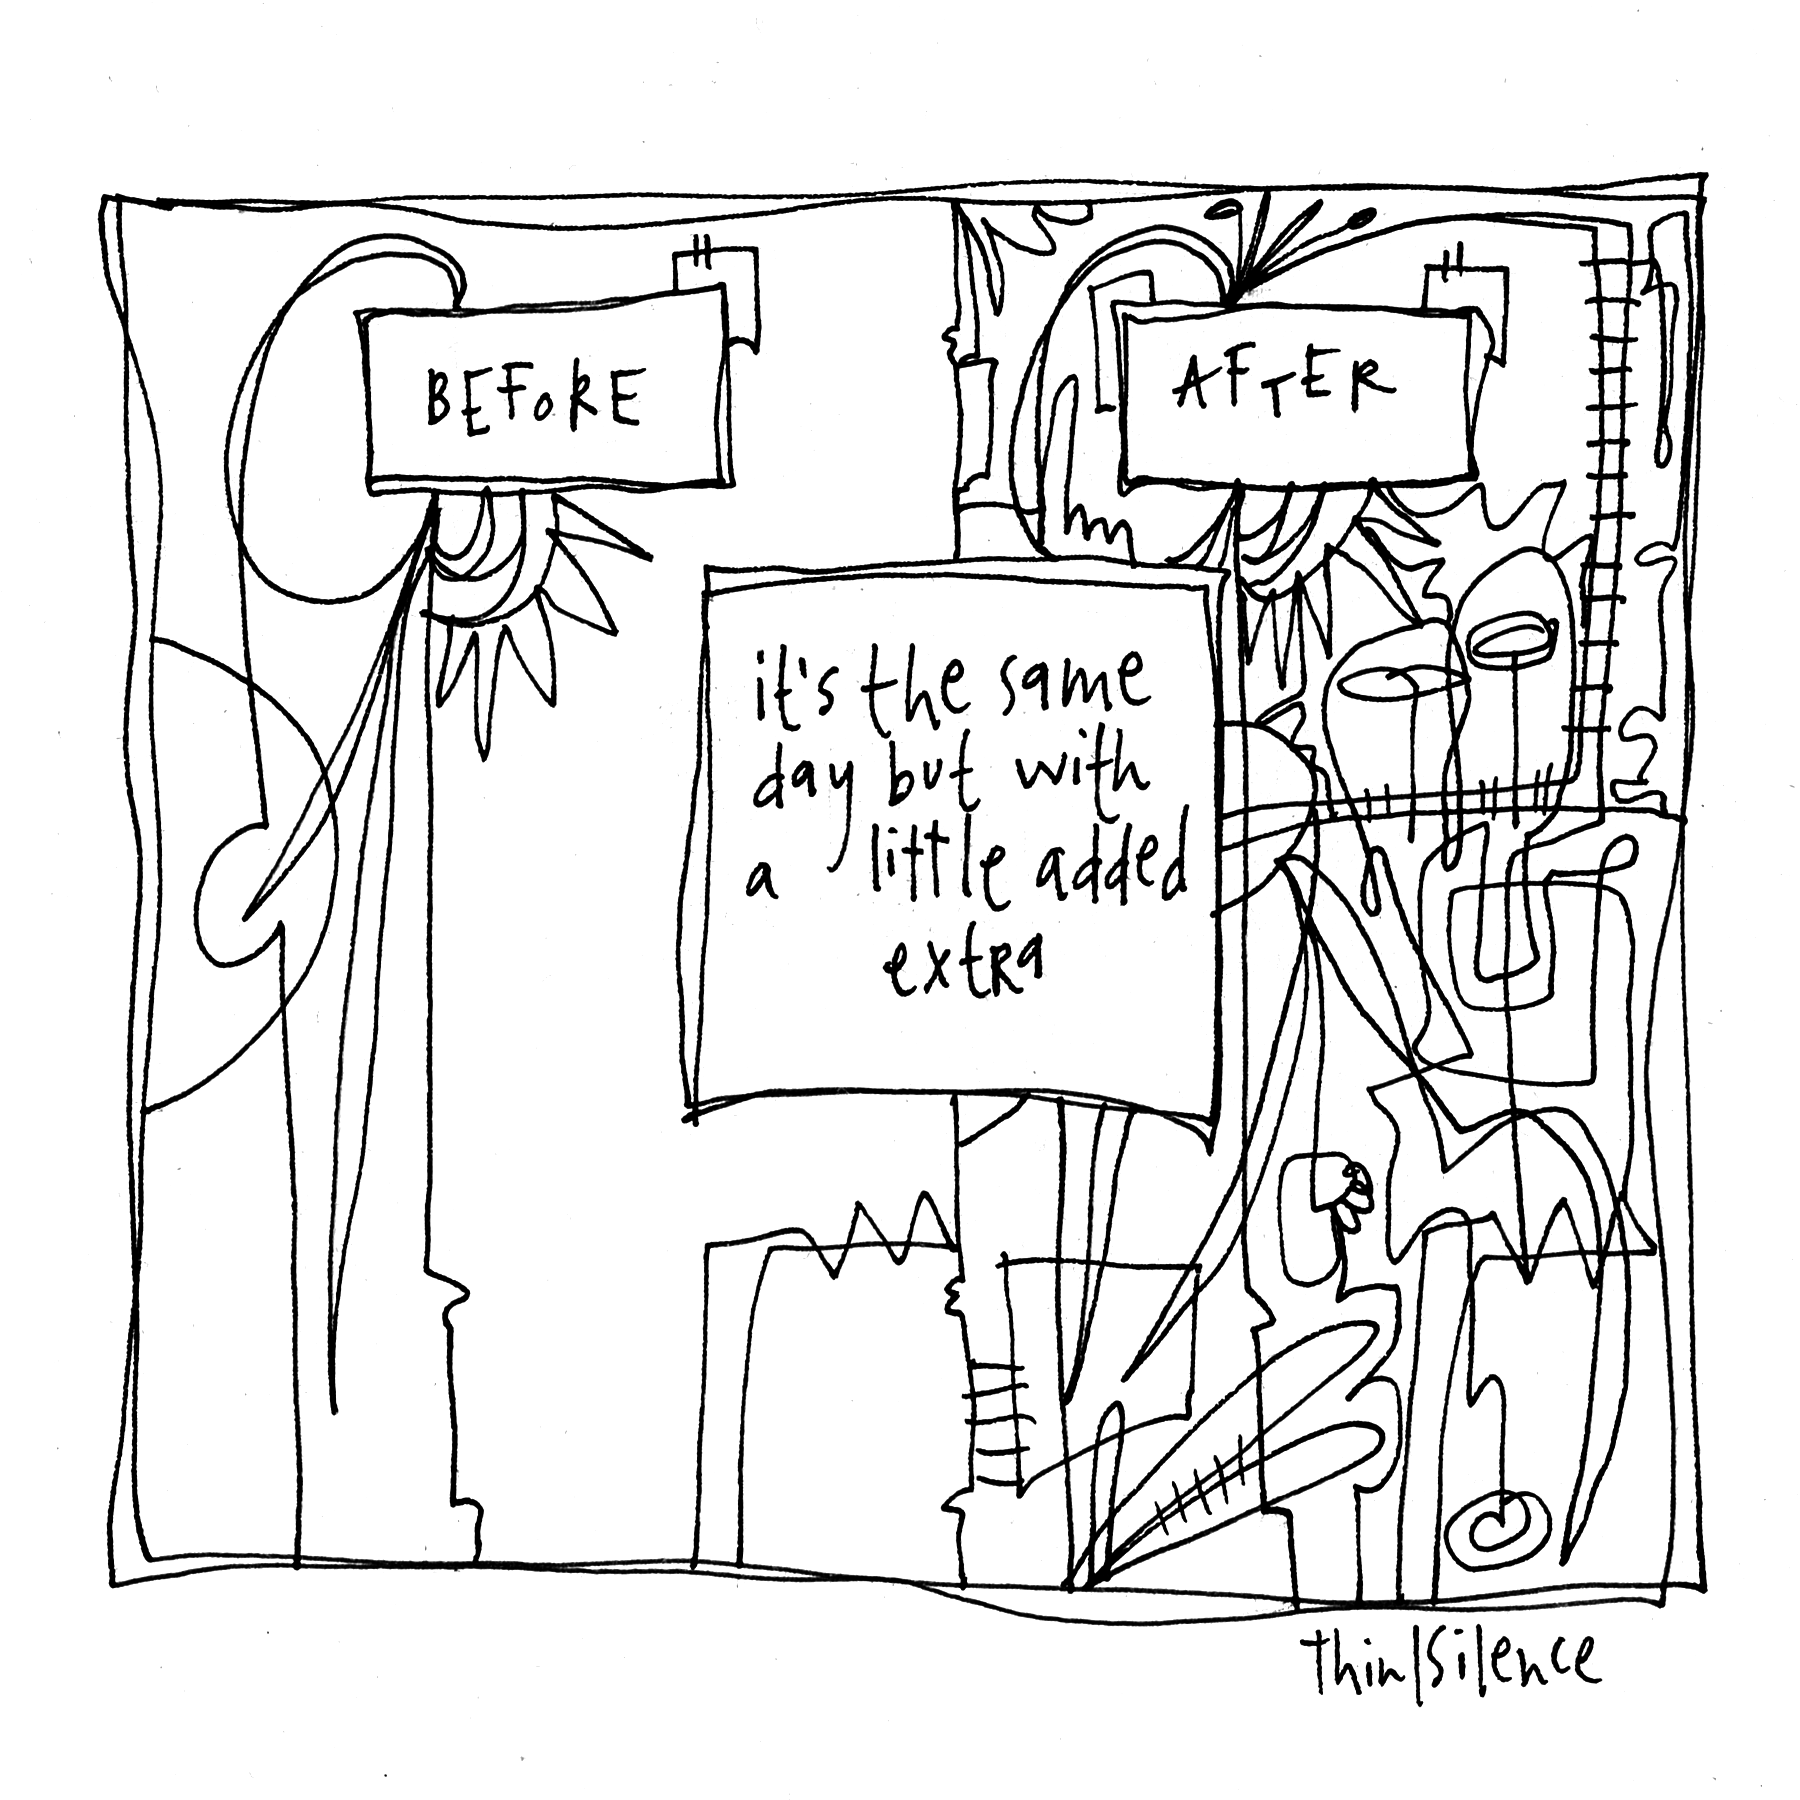 BEFORE
AFTER
it's the same
day but with
a little added
extra
thin|silence